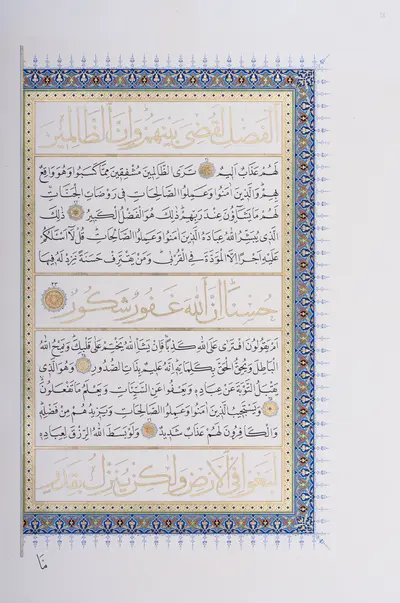 الفصل لقضي بينهم وإن الظالمين
لهم عذاب أليم ترى الظالمين مشفقين مما كسبوا وهو واقع
بهم والذين آمنوا وعملوا الصالحات في روضات الجنات
لهم ما يشاؤن عند ربهم ذلك هو الفضل الكبير ذلك
الذي يبشر الله عباده الذين آمنوا وعملوا الصالحات قل لا أسئلكم
عليه أجرا إلا المودة في القربى ومن يقترف حسنة نزد له فيها
حسنا إن الله غفور شكور ٢٣
أم يقولون افترى على الله كذبا فإن يشأ الله يختم على قلبك ويمح الله
الباطل ويحق الحق بكلماته إنه عليم بذات الصدور وهو الذي
يقبل التوبة عن عباده ويعفوا عن السيئات ويعلم ما تفعلون
ويستجيب الذين آمنوا وعملوا الصالحات ويزيدهم من فضله
والكافرون لهم عذاب شديد ولو بسط الله الرزق لعباده
لبغوا في الأرض ولكن ينزل بقدر